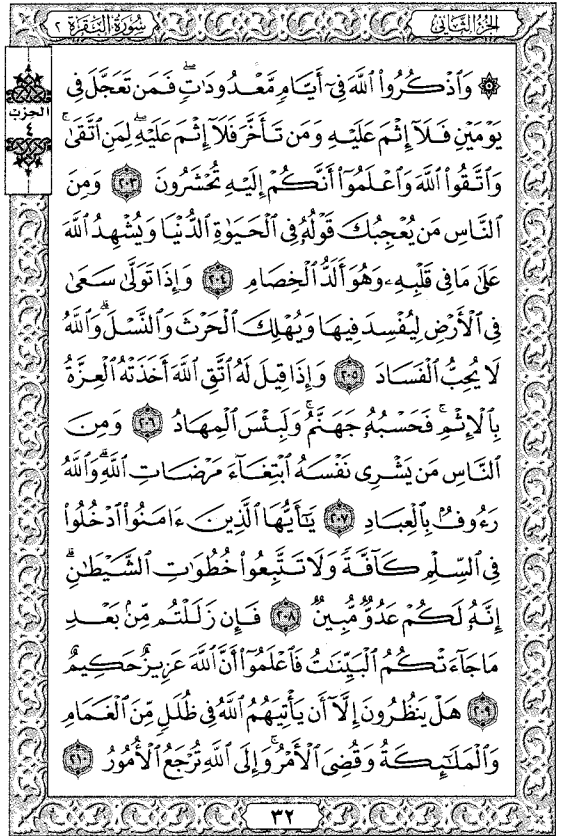 الجزء الثاني
سورة البقرة ٢
الحزب
٤
۞ وَٱذْكُرُوا۟ ٱللَّهَ فِىٓ أَيَّامٍ مَّعْدُودَٰتٍ ۚ فَمَن تَعَجَّلَ فِى
يَوْمَيْنِ فَلَآ إِثْمَ عَلَيْهِ وَمَن تَأَخَّرَ فَلَآ إِثْمَ عَلَيْهِ ۚ لِمَنِ ٱتَّقَىٰ ۗ
وَٱتَّقُوا۟ ٱللَّهَ وَٱعْلَمُوٓا۟ أَنَّكُمْ إِلَيْهِ تُحْشَرُونَ ٢٠٣ وَمِنَ
ٱلنَّاسِ مَن يُعْجِبُكَ قَوْلُهُۥ فِى ٱلْحَيَوٰةِ ٱلدُّنْيَا وَيُشْهِدُ ٱللَّهَ
عَلَىٰ مَا فِى قَلْبِهِۦ وَهُوَ أَلَدُّ ٱلْخِصَامِ ٢٠٤ وَإِذَا تَوَلَّىٰ سَعَىٰ
فِى ٱلْأَرْضِ لِيُفْسِدَ فِيهَا وَيُهْلِكَ ٱلْحَرْثَ وَٱلنَّسْلَ ۗ وَٱللَّهُ
لَا يُحِبُّ ٱلْفَسَادَ ٢٠٥ وَإِذَا قِيلَ لَهُ ٱتَّقِ ٱللَّهَ أَخَذَتْهُ ٱلْعِزَّةُ
بِٱلْإِثْمِ ۚ فَحَسْبُهُۥ جَهَنَّمُ ۚ وَلَبِئْسَ ٱلْمِهَادُ ٢٠٦ وَمِنَ
ٱلنَّاسِ مَن يَشْرِى نَفْسَهُ ٱبْتِغَآءَ مَرْضَاتِ ٱللَّهِ ۗ وَٱللَّهُ
رَءُوفٌۢ بِٱلْعِبَادِ ٢٠٧ يَٰٓأَيُّهَا ٱلَّذِينَ ءَامَنُوا۟ ٱدْخُلُوا۟
فِى ٱلسِّلْمِ كَآفَّةً وَلَا تَتَّبِعُوا۟ خُطُوَٰتِ ٱلشَّيْطَٰنِ ۚ
إِنَّهُۥ لَكُمْ عَدُوٌّ مُّبِينٌ ٢٠٨ فَإِن زَلَلْتُم مِّنۢ بَعْدِ
مَا جَآءَتْكُمُ ٱلْبَيِّنَٰتُ فَٱعْلَمُوٓا۟ أَنَّ ٱللَّهَ عَزِيزٌ حَكِيمٌ
٢٠٩ هَلْ يَنظُرُونَ إِلَّآ أَن يَأْتِيَهُمُ ٱللَّهُ فِى ظُلَلٍ مِّنَ ٱلْغَمَامِ
وَٱلْمَلَٰٓئِكَةُ وَقُضِىَ ٱلْأَمْرُ ۚ وَإِلَى ٱللَّهِ تُرْجَعُ ٱلْأُمُورُ ٢١٠
٣٢